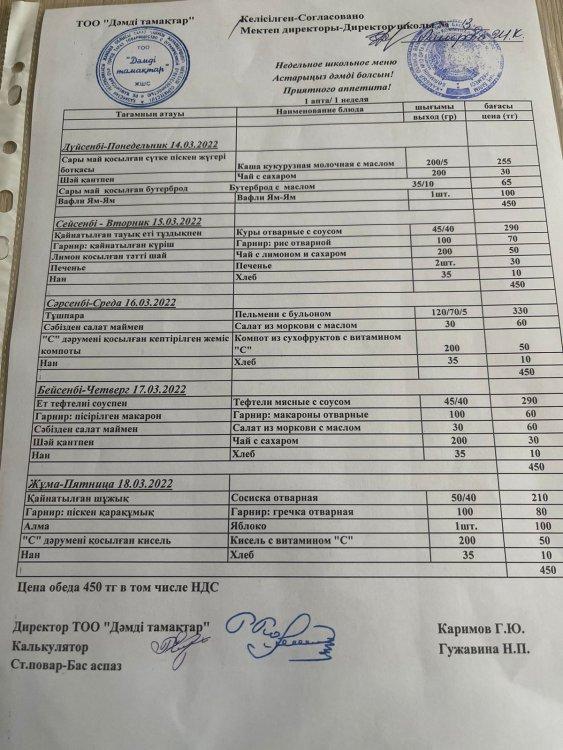 ТОО "Дәмді тамақтар" Келісілген-Согласовано
Мектеп директоры-Директор школы № 13
ТОО
"Дәмді
тамақтар"
ЖШС
Недельное школьное меню
Астарыңыз дәмді болсын!
Приятного аппетита!
1 апта/ 1 неделя
Тағамның атауы Наименование блюда шығымы выход (гр) бағасы цена (тг)
Дүйсенбі-Понедельник 14.03.2022
Сары май қосылған сүтке піскен жүгері ботқасы Каша кукурузная молочная с маслом 200/5 255
Шәй қантпен Чай с сахаром 200 30
Сары май қосылған бутерброд Бутерброд с маслом 35/10 65
Вафли Ям-Ям Вафли Ям-Ям 1шт. 100
450
Сейсенбі - Вторник 15.03.2022
Қайнатылған тауық еті тұздықпен Куры отварные с соусом 45/40 290
Гарнир: қайнатылған күріш Гарнир: рис отварной 100 70
Лимон қосылған тәтті шай Чай с лимоном и сахаром 200 50
Печенье Печенье 2шт. 30
Нан Хлеб 35 10
450
Сәрсенбі-Среда 16.03.2022
Тұшпара Пельмени с бульоном 120/70/5 330
Сәбізден салат маймен Салат из моркови с маслом 30 60
"С" дәрумені қосылған кептірілген жеміс компоты Компот из сухофруктов с витамином "С" 200 50
Нан Хлеб 35 10
450
Бейсенбі-Четверг 17.03.2022
Ет тефтелиі соуспен Тефтели мясные с соусом 45/40 290
Гарнир: пісірілген макарон Гарнир: макароны отварные 100 60
Сәбізден салат маймен Салат из моркови с маслом 30 60
Шәй қантпен Чай с сахаром 200 30
Нан Хлеб 35 10
450
Жұма-Пятница 18.03.2022
Қайнатылған шұжық Сосиска отварная 50/40 210
Гарнир: піскен қарақұмық Гарнир: гречка отварная 100 80
Алма Яблоко 1шт. 100
"С" дәрумені қосылған кисель Кисель с витамином "С" 200 50
Нан Хлеб 35 10
450
Цена обеда 450 тг в том числе НДС
Директор ТОО "Дәмді тамақтар" Каримов Г.Ю.
Калькулятор Гужавина Н.П.
Ст.повар-Бас аспаз